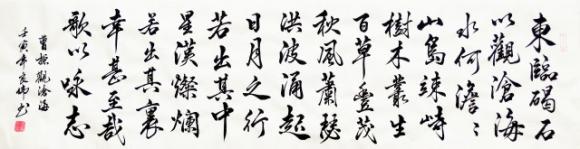 東臨碣石
以觀滄海
水何澹〻
山島竦峙
樹木叢生
百草豐茂
秋風蕭瑟
洪波涌起
日月之行
若出其中
星漢燦爛
若出其裏
幸甚至哉
歌以咏志
曹操觀滄海
壬寅年良偉書